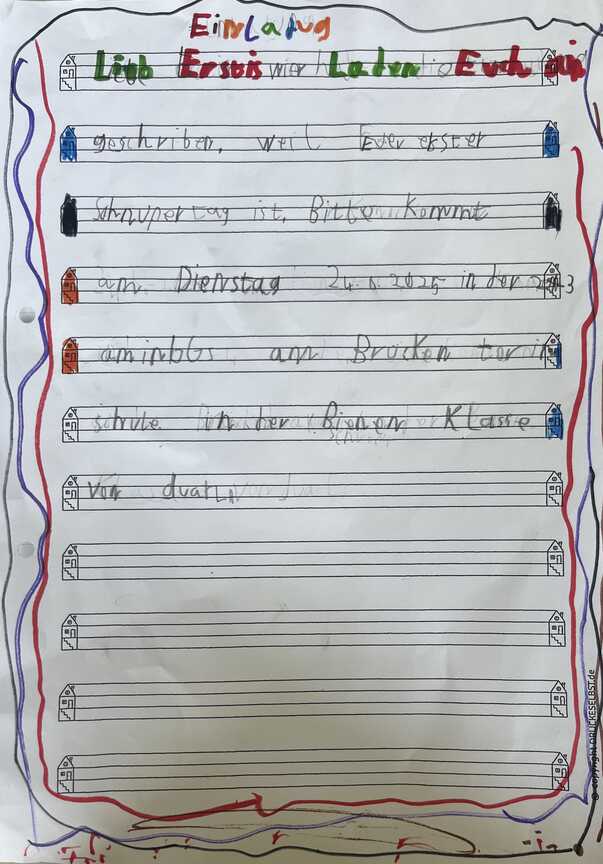 Einladug
Lieb Ersois wier Laden Euch ein
geschriben, weil Euer erster
Schnupertag ist. Bitte kommt
am Dienstag 24.6.2025 in der
am Brücken tor in
schule in der Bienen Klasse
von
© copyright DRUCKESELBST.de